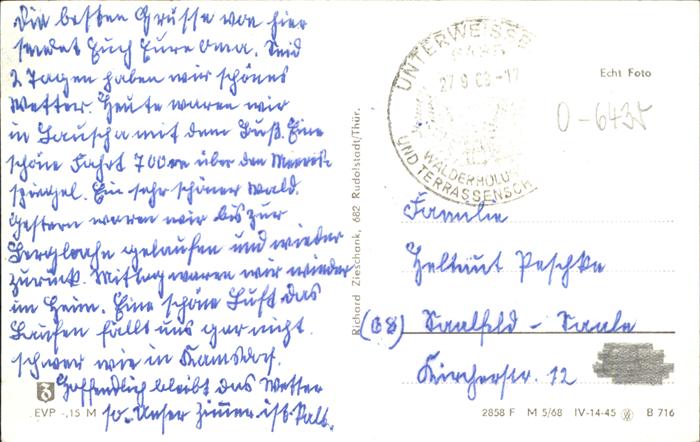 Die besten Grüsse von hier
sendet Euch Eure Oma. Seid
2 Tagen haben wir schönes
Wetter. Heute waren wir
in Lauscha mit dem Buß. Eine
schöne Fahrt 700m über den Meeres-
spiegel. Ein sehr schöner Wald.
Gestern waren wir bis zur
Bergbahn gelaufen und wieder
zurück. Mittag waren wir wieder
im Heim. Eine schöne Luft das
Laufen fällt uns gar nicht
schwer wie in Kamsdorf.
Hoffendlich bleibt das Wetter
so. Unser Zimmer ist kalt.
EVP -,15 M
Richard Zieschank, 682 Rudolstadt/Thür.
UNTERWEISSB
27.9.68-17
WALDERHOLU
UND TERRASSENSCH
Echt Foto
O-6435
Familie
Heltaut Peschke
(68) Saalfeld - Saale
Kircherstr. 12
2858 F M 5/68 IV-14-45 B 716